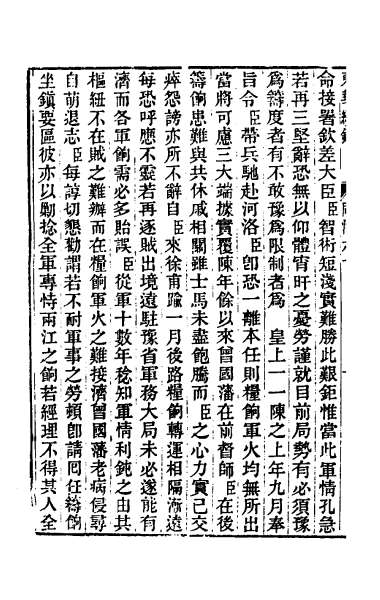 命接署欽差大臣臣智術短淺實難勝此艱鉅惟當此軍情孔急
若再三堅辭恐無以仰體宵旰之憂勞謹就目前局勢有必須豫
為籌度者有不敢豫為限制者為　皇上一一陳之上年九月奉
旨令臣帶兵馳赴河洛臣卽恐一離本任則糧餉軍火均無所出
當將可慮三大端據實覆陳年餘以來曾國藩在前督師臣在後
籌餉患難與共休戚相關雖士馬未盡飽騰而臣之心力實已交
瘁怨謗亦所不辭自臣來徐甫踰一月後路糧餉轉運相隔漸遠
每恐呼應不靈若再逐賊出境遠駐豫省軍務大局未必遂能有
濟而各軍餉需必多貽誤臣從軍十數年稔知軍情利鈍之由其
樞紐不在賊之難辦而在糧餉軍火之難接濟曾國藩老病侵尋
自萌退志臣每諄切懇勸謂若不耐軍事之勞頓卽請回任籌餉
坐鎭要區彼亦以勦捻全軍專恃兩江之餉若經理不得其人全